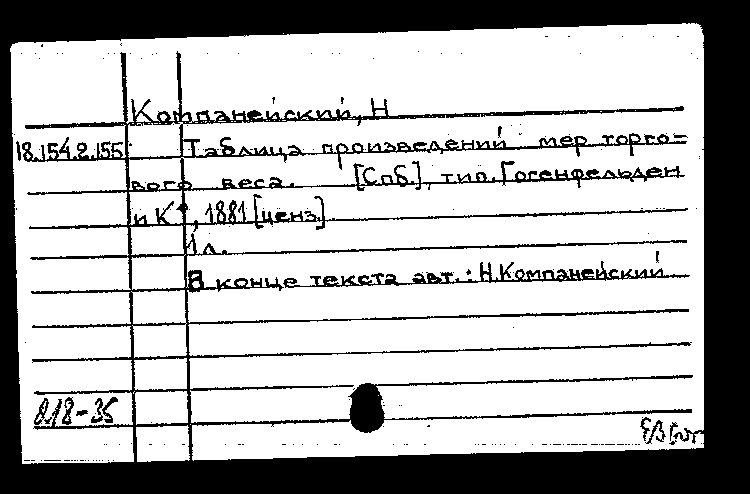 Компанейский, Н
18.154.2.155 Таблица произведений мер торго=
вого веса. [Спб.], тип. Гогенфельден
и К°, 1881 [ценз.]
1 л.
В конце текста авт.: Н. Компанейский
818-35